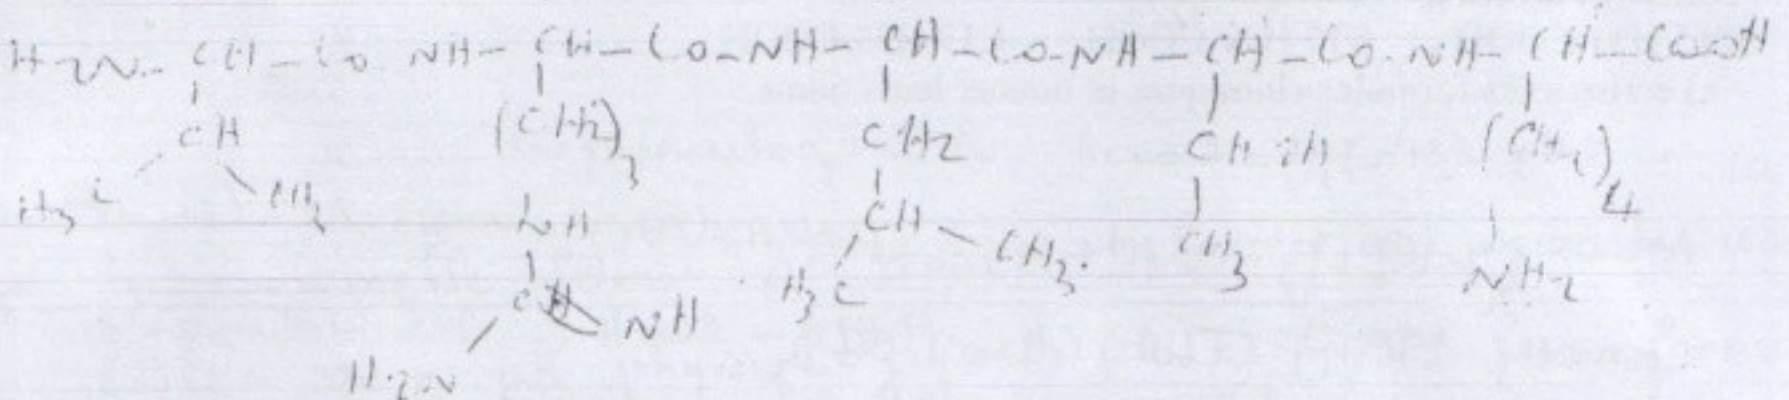 H2N - CH - CO NH - CH - CO - NH - CH - CO - NH - CH - CO - NH - CH - COOH
CH (CH2)3 CH2 CH OH (CH2)4
H3C CH3 NH CH CH3. CH3 NH2
C NH H3C
H2N